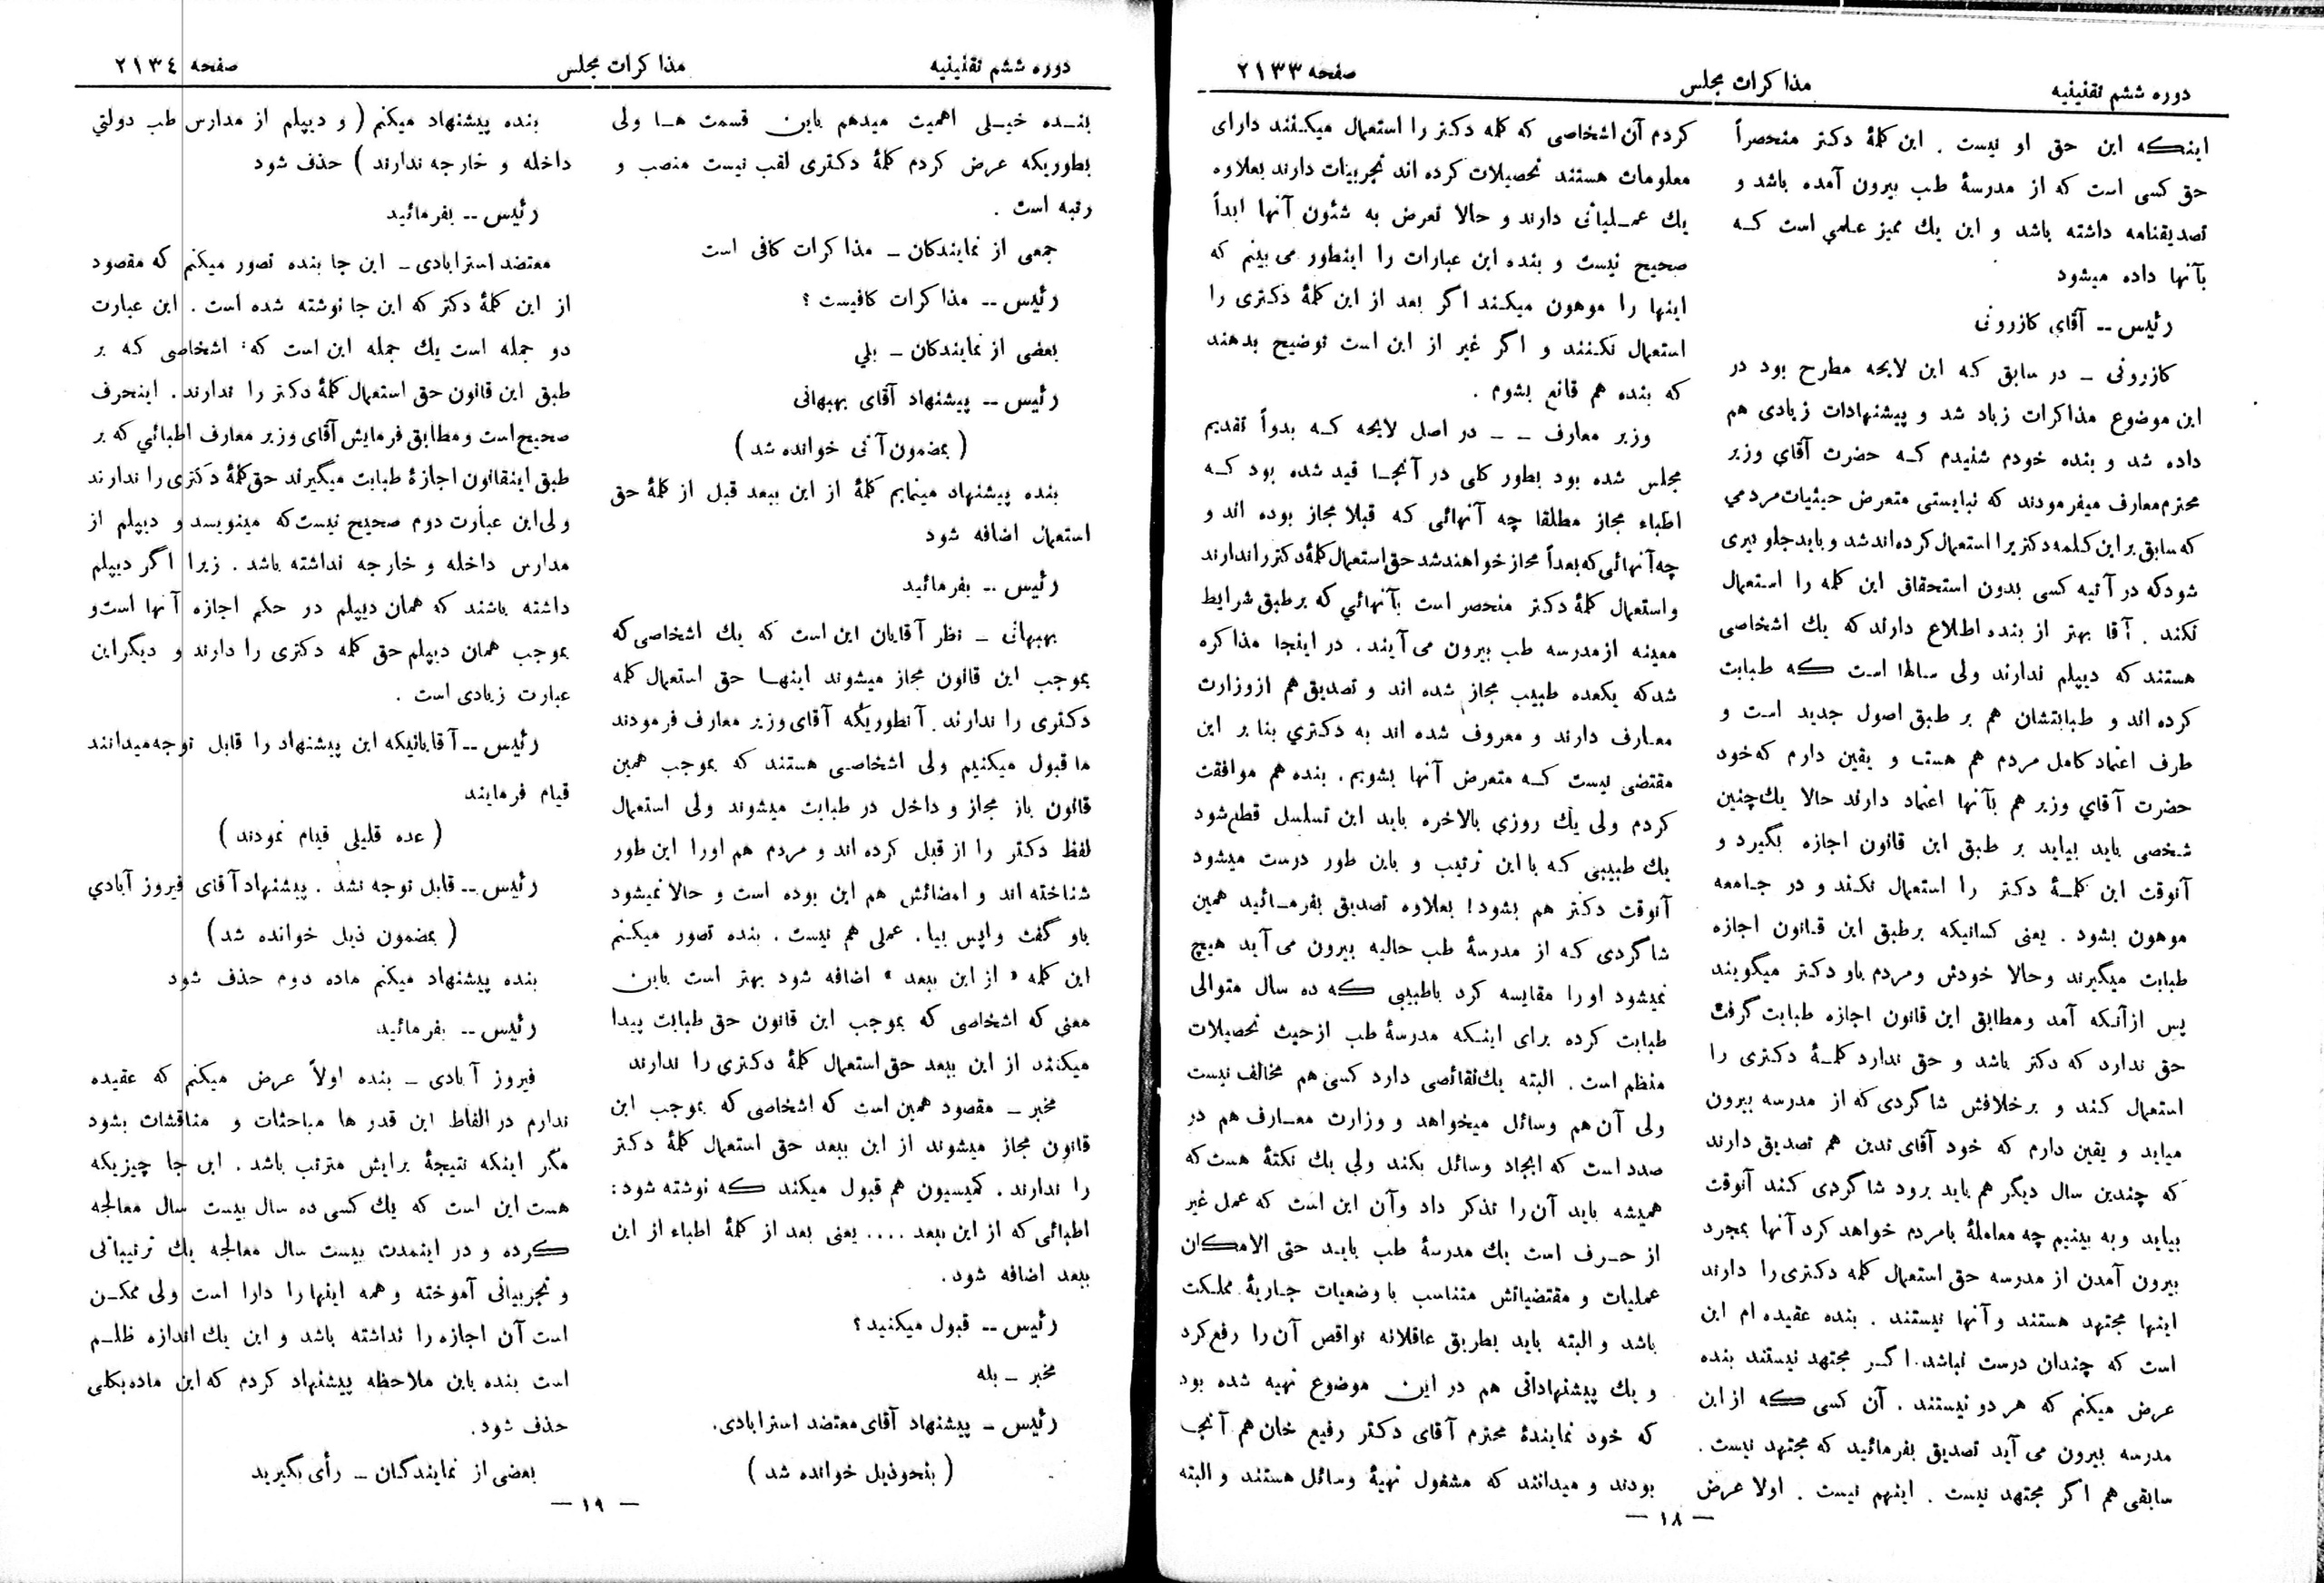 دوره ششم تقنینیه
مذاکرات مجلس
صفحه ۲۱۳۳
اینکه این حق او نیست . این کلمهٔ دکتر منحصراً
حق کسی است که از مدرسهٔ طب بیرون آمده باشد و
تصدیقنامه داشته باشد و این یك ممیز علمی است که
بآنها داده میشود
رئیس -- آقای کازرونی
کازرونی - در سابق که این لایحه مطرح بود در
این موضوع مذاکرات زیاد شد و پیشنهادات زیادی هم
داده شد و بنده خودم شنیدم که حضرت آقای وزیر
محترم معارف میفرمودند که نبایستی متعرض حیثیات مردمی
که سابق بر این کلمه دکتریرا استعمال کرده‌اند شد و باید جلو گیری
شود که در آتیه کسی بدون استحقاق این کلمه را استعمال
نکند . آقا بهتر از بنده اطلاع دارند که یك اشخاصی
هستند که دیپلم ندارند ولی سالها است که طبابت
کرده اند و طبابتشان هم بر طبق اصول جدید است و
طرف اعتماد کامل مردم هم هست و یقین دارم که خود
حضرت آقای وزیر هم بآنها اعتماد دارند حالا یك چنین
شخصی باید بیاید بر طبق این قانون اجازه بگیرد و
آنوقت این کلمهٔ دکتر را استعمال نکند و در جامعه
موهون بشود . یعنی کسانیکه برطبق این قانون اجازه
طبابت میگیرند وحالا خودش ومردم باو دکتر میگویند
پس ازآنکه آمد ومطابق این قانون اجازه طبابت گرفت
حق ندارد که دکتر باشد و حق ندارد کلمهٔ دکتری را
استعمال کند و برخلافش شاگردی که از مدرسه بیرون
میاید و یقین دارم که خود آقای تدین هم تصدیق دارند
که چندین سال دیگر هم باید برود شاگردی کند آنوقت
بیاید وبه بینیم چه معاملهٔ بامردم خواهد کرد آنها بمجرد
بیرون آمدن از مدرسه حق استعمال کلمه دکتری را دارند
اینها مجتهد هستند وآنها نیستند . بنده عقیده ام این
است که چندان درست نباشد. اگر مجتهد نیستند بنده
عرض میکنم که هر دو نیستند . آن کسی که از این
مدرسه بیرون می آید تصدیق بفرمائید که مجتهد نیست .
سابقی هم اگر مجتهد نیست . اینهم نیست . اولا عرض
کردم آن اشخاصی که کلمه دکتر را استعمال میکنند دارای
معلومات هستند تحصیلات کرده اند تجربیات دارند بعلاوه
یك عملیاتی دارند و حالا تعرض به شئون آنها ابداً
صحیح نیست و بنده این عبارات را اینطور می بینم که
اینها را موهون میکند اگر بعد از این کلمهٔ دکتری را
استعمال نکنند و اگر غیر از این است توضیح بدهند
که بنده هم قانع بشوم .
وزیر معارف - - در اصل لایحه که بدواً تقدیم
مجلس شده بود بطور کلی در آنجا قید شده بود که
اطباء مجاز مطلقا چه آنهائی که قبلا مجاز بوده اند و
چه آنهائی که بعداً مجاز خواهند شد حق استعمال کلمهٔ دکتر را ندارند
واستعمال کلمهٔ دکتر منحصر است بآنهائی که برطبق شرایط
معینه از مدرسه طب بیرون می آیند . در اینجا مذاکره
شد که یکعده طبیب مجاز شده اند و تصدیق هم از وزارت
معارف دارند و معروف شده اند به دکتری بنا بر این
مقتضی نیست که متعرض آنها بشویم . بنده هم موافقت
کردم ولی یك روزی بالاخره باید این تسلسل قطع شود
یك طبیبی که با این ترتیب و باین طور درست میشود
آنوقت دکتر هم بشود! بعلاوه تصدیق بفرمائید همین
شاگردی که از مدرسهٔ طب حالیه بیرون می آید هیچ
نمیشود اورا مقایسه کرد باطبیبی که ده سال متوالی
طبابت کرده برای اینکه مدرسهٔ طب ازحیث تحصیلات
منظم است . البته یك نقائصی دارد کسی هم مخالف نیست
ولی آن هم وسائل میخواهد و وزارت معارف هم در
صدد است که ایجاد وسائل بکند ولی یك نکتهٔ هست که
همیشه باید آن را تذکر داد وآن این است که عمل غیر
از حرف است یك مدرسهٔ طب باید حتی الامکان
عملیات و مقتضیاتش متناسب با وضعیات جاریهٔ مملکت
باشد و البته باید بطریق عاقلانه نواقص آن را رفع کرد
و یك پیشنهاداتی هم در این موضوع تهیه شده بود
که خود نمایندهٔ محترم آقای دکتر رفیع خان هم آنجا
بودند و میدانند که مشغول تهیهٔ وسائل هستند و البته
— ۱۸ —
دوره ششم تقنینیه
مذاکرات مجلس
صفحه ۲۱۳٤
بنده خیلی اهمیت میدهم باین قسمت ها ولی
بطوریکه عرض کردم کلمهٔ دکتری لقب نیست منصب و
رتبه است .
جمعی از نمایندکان - مذاکرات کافی است
رئیس -- مذاکرات کافیست ؟
بعضی از نمایندکان - بلی
رئیس -- پیشنهاد آقای بهبهانی
( بمضمون آتی خوانده شد )
بنده پیشنهاد مینمایم کلمهٔ از این ببعد قبل از کلمهٔ حق
استعمال اضافه شود
رئیس -- بفرمائید
بهبهانی - نظر آقایان این است که یك اشخاصی که
بموجب این قانون مجاز میشوند اینها حق استعمال کلمه
دکتری را ندارند . آنطوریکه آقای وزیر معارف فرمودند
ما قبول میکنیم ولی اشخاصی هستند که بموجب همین
قانون باز مجاز و داخل در طبابت میشوند ولی استعمال
لفظ دکتر را از قبل کرده اند و مردم هم اورا این طور
شناخته اند و امضائش هم این بوده است و حالا نمیشود
باو گفت واپس بیا . عملی هم نیست . بنده تصور میکنم
این کلمه « از این ببعد » اضافه شود بهتر است باین
معنی که اشخاصی که بموجب این قانون حق طبابت پیدا
میکنند از این ببعد حق استعمال کلمهٔ دکتری را ندارند
مخبر - مقصود همین است که اشخاصی که بموجب این
قانون مجاز میشوند از این ببعد حق استعمال کلمهٔ دکتر
را ندارند . کمیسیون هم قبول میکند که نوشته شود:
اطبائی که از این ببعد .... یعنی بعد از کلمهٔ اطباء از این
ببعد اضافه شود.
رئیس -- قبول میکنید ؟
مخبر - بله
رئیس - پیشنهاد آقای معتضد استرابادی.
( بنحوذیل خوانده شد )
بنده پیشنهاد میکنم ( و دیپلم از مدارس طب دولتی
داخله و خارجه ندارند ) حذف شود
رئیس -- بفرمائید
معتضد استرابادی - این جا بنده تصور میکنم که مقصود
از این کلمهٔ دکتر که این جا نوشته شده است . این عبارت
دو جمله است یك جمله این است که: اشخاصی که بر
طبق این قانون حق استعمال کلمهٔ دکتر را ندارند . اینحرف
صحیح است ومطابق فرمایش آقای وزیر معارف اطبائی که بر
طبق اینقانون اجازهٔ طبابت میگیرند حق کلمهٔ دکتری را ندارند
ولی این عبارت دوم صحیح نیست که مینویسد و دیپلم از
مدارس داخله و خارجه نداشته باشد . زیرا اگر دیپلم
داشته باشند که همان دیپلم در حکم اجازه آنها است و
بموجب همان دیپلم حق کلمه دکتری را دارند و دیگر این
عبارت زیادی است .
رئیس -- آقایانیکه این پیشنهاد را قابل توجه میدانند
قیام فرمایند
( عده قلیلی قیام نمودند )
رئیس -- قابل توجه نشد . پیشنهاد آقای فیروز آبادی
( بمضمون ذیل خوانده شد )
بنده پیشنهاد میکنم ماده دوم حذف شود
رئیس -- بفرمائید
فیروز آبادی - بنده اولاً عرض میکنم که عقیده
ندارم در الفاظ این قدر ها مباحثات و مناقشات بشود
مگر اینکه نتیجهٔ برایش مترتب باشد . این جا چیزیکه
هست این است که یك کسی ده سال بیست سال معالجه
کرده و در اینمدت بیست سال معالجه یك ترتیباتی
و تجربیاتی آموخته وهمه اینها را دارا است ولی ممکن
است آن اجازه را نداشته باشد و این یك اندازه ظلم
است بنده باین ملاحظه پیشنهاد کردم که این ماده بکلی
حذف شود.
بعضی از نمایندگان - رأی بگیرید
— ۱۹ —